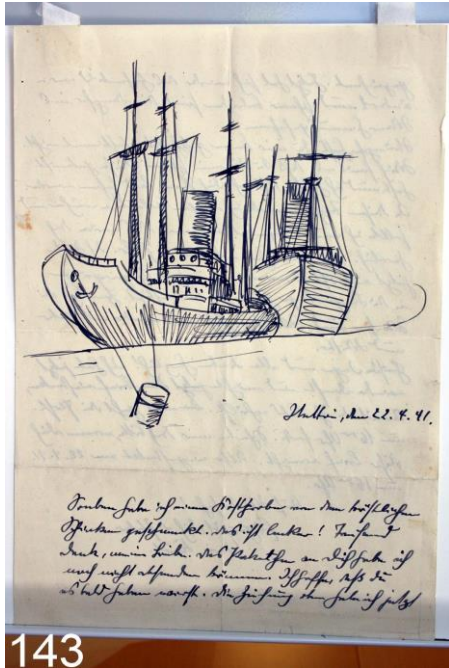 , den 22. 4. 41.
Soeben habe ich eine Kostprobe von dem köstlichen
Schinken geschmeckt. das ist lecker! Tausend
Dank, meine Liebe. das Paketchen an Dich habe ich
noch nicht absenden können. Ich hoffe, daß du
es bald haben wirst. die Zeichnung oben habe ich jetzt
143